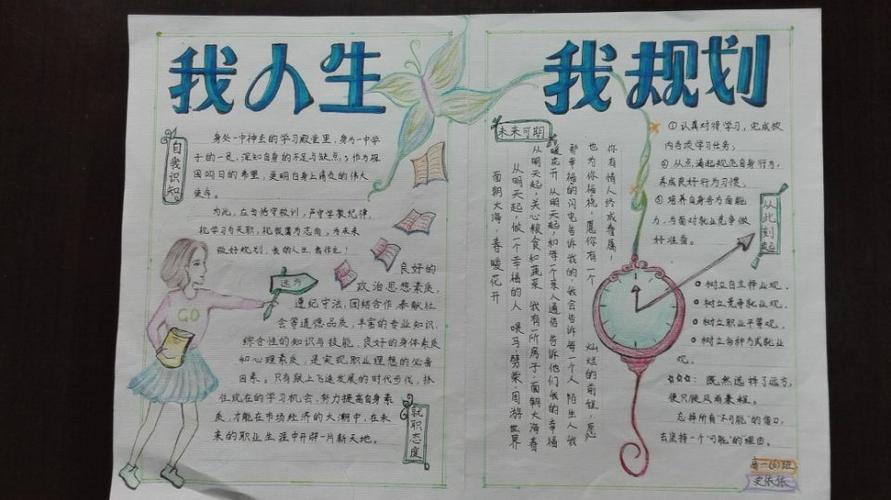 我人生
我规划
自我识知
身处一中神圣的学习殿堂里，身为一中学
子的一员，深知自身的不足与缺点；作为祖
国明日的希望，更明白身上肩负的伟大
使命。
为此，在当恪守校训，严守学校纪律，
做好规划，我的人生，我作主！
远方
GO
良好的
政治思想素质，
遵纪守法，团结合作，奉献社
会等道德品质，丰富的专业知识，
综合性的知识与技能，良好的身体素质
和心理素质，是实现职业理想的必备
因素。只有跟上飞速发展的时代步伐，抓
住现在的学习机会，努力提高自身素
质，才能在市场经济的大潮中，在未
来的职业生涯中开辟一片新天地。
就职态度
未来可期
你有情人终成眷属，
也为你祝福，愿你有一个
灿烂的前程，愿
那幸福的闪电告诉我的，我会告诉每一个人
陌生人我
暖花开
从明天起，和每一个亲人通信
告诉他们我的幸福
从明天起，关心粮食和蔬菜
我有一所房子，面朝大海，春
从明天起，做一个幸福的人
喂马劈柴，周游世界
面朝大海，春暖花开
①认真对待学习，完成校
内各项学习任务；
②从点滴起规范自身行为，
养成良好行为习惯；
③培养自身各方面能
力，与面对就业竞争做
好准备。
从此刻起
树立自主择业观、
树立竞争就业观、
树立职业平等观、
树立多种方式就业
观。
既然选择了远方，
便只顾风雨兼程。
忘掉所有“不可能”的借口，
去坚持一个“可能”的理由。
高一(6)班